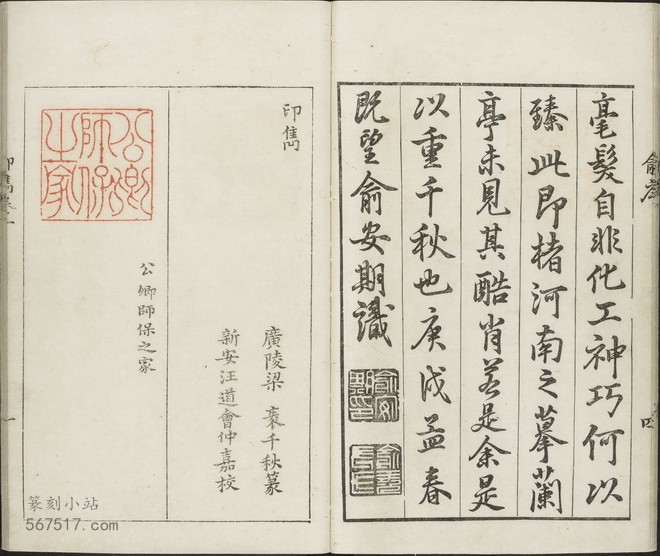 毫髮自非化工神巧何以
臻此即楮河南之摹蘭
亭未見其酷肖若是余是
以重千秋也庚戌孟春
既望俞安期識
俞安期印
四
印雋
廣陵梁袠千秋篆
新安汪道會仲嘉校
公卿師保之家
公卿師保之家
印雋卷一
一
篆刻小站
567517.com